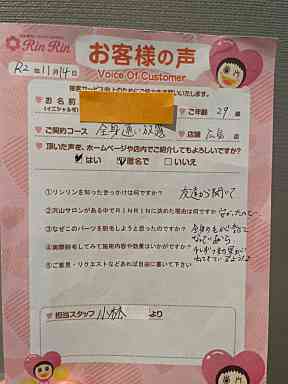 RinRin
R2年11月14日
お客様の声
Voice Of Customer
接客サービス向上のためにご協力をお願いいたします。
お名前
(イニシャル可)
ご年齢 29歳
ご契約コース 全身通い放題
店舗 広島店
頂いた声を、ホームページや店内でご紹介してもよろしいですか?
はい 匿名で いいえ
①リンリンを知ったきっかけは何ですか? 友達から聞いて
②沢山サロンがある中でRINRINに決めた理由は何ですか?
③なぜこのパーツを脱毛しようと思ったのですか?
④実際脱毛してみて施術内容や効果はいかがですか?
⑤ご意見・リクエストなどあれば自由に書いて下さい
担当スタッフ 小林 より